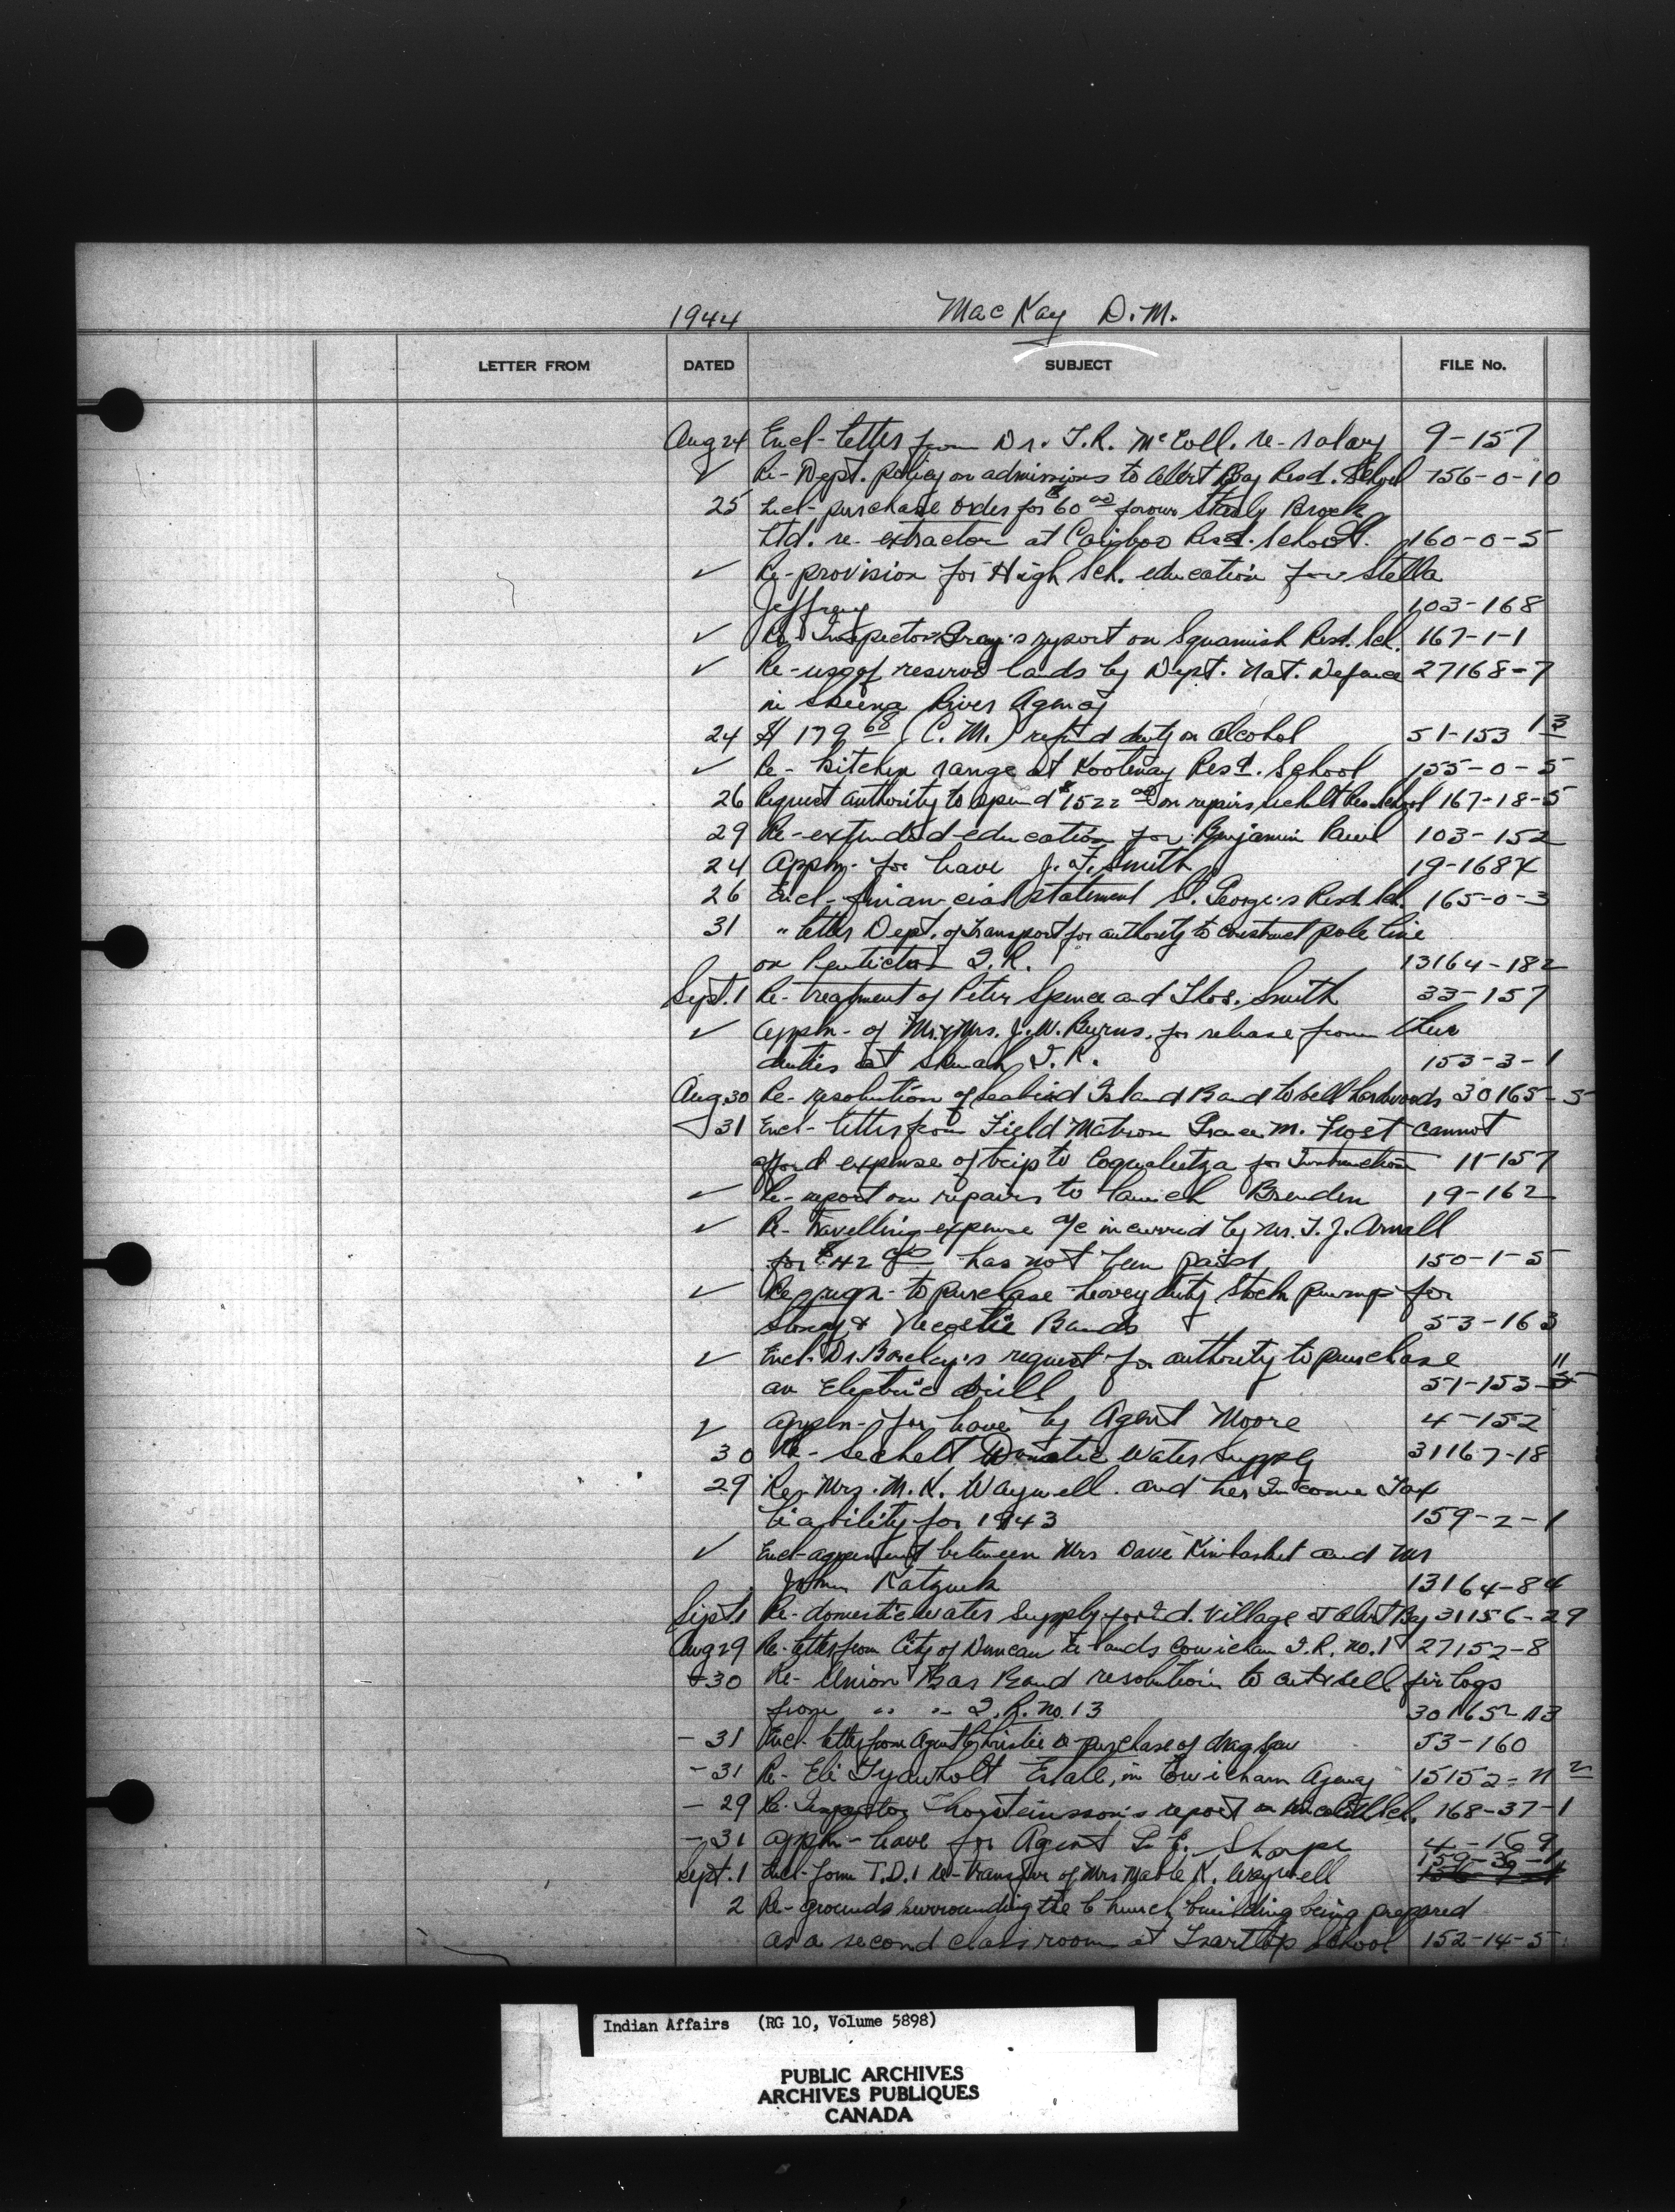 1944 MacKay D.M.
LETTER FROM DATED SUBJECT FILE No.
Aug 24 Encl- letter from Dr. T.R. McColl. re- salary 9-157
✓ Re- Dept. policy on admissions to Alert Bay Resd. School 156-0-10
25 Encl- purchase order for $60 00 favour Stanly Brock
Ltd. re- extractor at Cariboo Resd. School. 160-0-5
✓ Re- provision for High Sch. education for Stella
Jeffrey 103-168
✓ Re- Inspector Gray's report on Squamish Resd. Sch. 167-1-1
✓ Re- use of reserve lands by Dept. Nat. Defence 27168-7
in Skeena River Agency
24 $179 68 (C.M.) refund duty on alcohol 51-153 13
✓ Re- kitchen range at Kootenay Resd. School 155-0-5
26 Request authority to spend $1522 00 on repairs Sechelt Res. School 167-18-5
29 Re- extended education for Benjamin Paul 103-152
24 Appln- for leave J. F. Smith 19-168
26 Encl- financial statement St. George's Resd. Sch. 165-0-3
31 " letter Dept. of Transport for authority to construct pole line
on Penticton I.R. 13164-182
Sept. 1 Re- treatment of Peter Spence and Thos. Smith 33-157
✓ Appln- of Mr. & Mrs. J. W. Burns. for release from their
duties at Skwah I.R. 153-3-1
Aug. 30 Re- resolution of Seabird Island Band to sell 30165-5
31 Encl- letter from Field Matron Grace M. Frost cannot
afford expense of trip to Coqualeetza for Instruction 11-157
✓ Re- report on repairs to launch Brenden 19-162
✓ Re- travelling expense a/c incurred by Mr. T. J. Arnall
for $42 has not been paid 150-1-5
✓ Re to purchase heavy duty stock pump for
Stony & Necoslie Bands 53-163
✓ Encl. Dr. Barclay's request for authority to purchase 11
an Electric drill 51-153-
✓ Appln- for leave by Agent Moore 4-152
30 Re- Sechelt Domestic Water Supply 31167-18
29 Re- Mrs. M. K. Waywell and her Income Tax
liability for 1943 159-2-1
✓ Encl- agreement between Mrs Dave Kinbasket and Mr
John Katzuck 13164-84
Sept 1 Re- domestic water supply for Ind. Village at Alert Bay 31156-29
Aug 29 Re- letter from City of Duncan re- lands Cowichan I.R. no. 1 27152-8
-30 Re- Union Bar Band resolution to cut & sell fir logs
from " " I.R. no. 13 30165-13
- 31 Encl- letter from Agent Christie re- purchase of drag saw 53-160
- 31 Re- Eli Tyawholt Estate, in Cowichan Agency 15152-11 2
- 29 Re- Inspector Thorsteinsson's report on Sch. 168-37-1
- 31 Appln- leave for Agent P. E. Sharpe 4-169
Sept. 1 Encl- form T.D. 1 re- transfer of Mrs Mable K. Waywell 159-39-1
2 Re- grounds surrounding the Church building being prepared
as a second class room at Tsartlip School 152-14-5
Indian Affairs (RG 10, Volume 5898)
PUBLIC ARCHIVES
ARCHIVES PUBLIQUES
CANADA